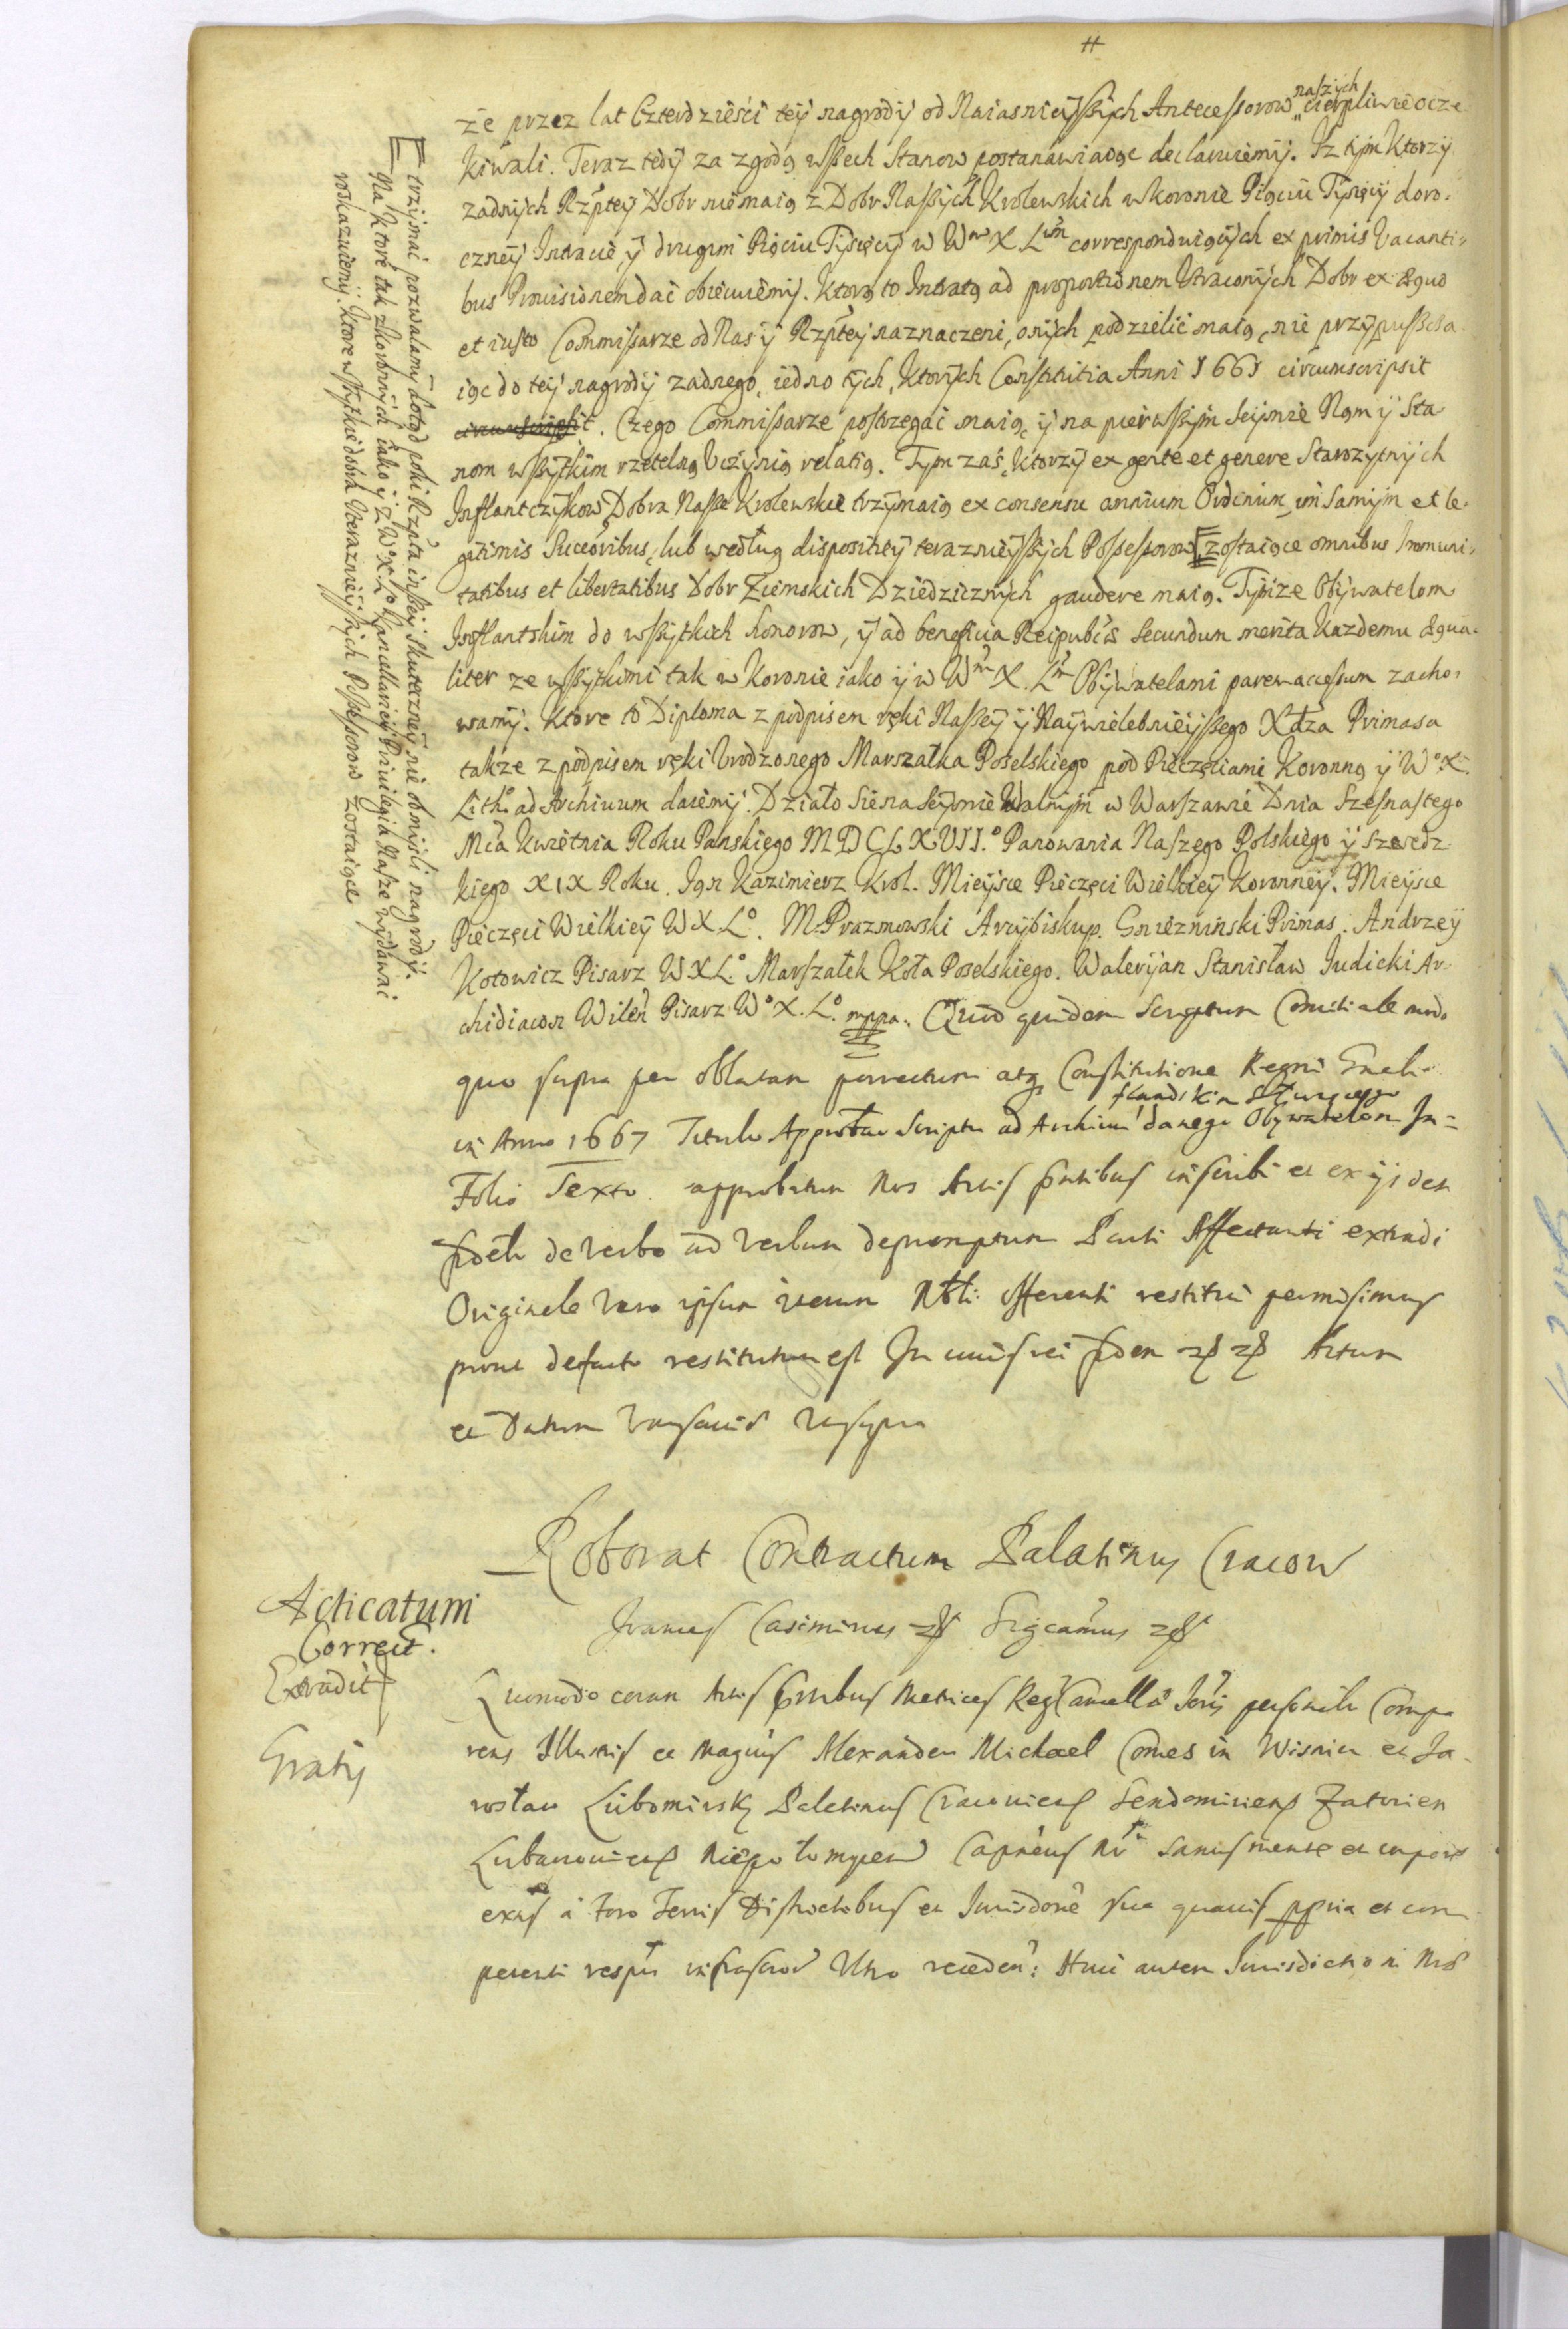 naszych
że przez lat Czterdzieści teÿ nagrodÿ od Naiasnieÿszÿch Antecessorow cierpliwie ocze-
kiwali. Teraz tedÿ za zgodą wszech Stanow postanawiaiąc declaruiemÿ. Iż tÿm Ktorzÿ
zadnÿch Rzptey Dobr niemaią z Dobr Naszÿch Krolewskich w Koronie Pięciu Tysięcÿ doro-
cznÿ Intracie, ÿ drugim Pięciu Tÿsięcÿ w Wm X Lm correspoduiącÿch ex primis Vacanti-
bus Prouisionem dać obiecuiemÿ. Ktorą to Intratę ad proportionem Utraconÿch Dobr ex æquo
et iusto Commissarze od Nas ÿ Rzptey naznaczeni, onÿch podzielić maią, nie przÿpuszcza-
iąc do teÿ nagrodÿ zadnego, iedno tÿch, Ktorÿch Constitutia Anni 1661 circumscripsit
. Czego Commissarze postrzegać maią, ÿ na pierwszÿm Seÿmie Nam ÿ Sta
nom wszÿtkim rzetelną Uczÿnią relatią. Tym zaś, Ktorzÿ ex gente et genere Starozytnÿch
Inflantczÿkow Dobra Nasze Krolewskie trzÿmaią ex consensu omnium Ordinum, im Samÿm et le-
gitimis Succōribus, lub według dispositieÿ teraznieÿszÿch Possessorow zostaiące omnibus Immuni-
tatibus et libertatibus Dobr Ziemskich Dziedzicznÿch gaudere maią. Tÿmze Obÿwatelom
Inflantskim do wszÿtkich honorow, ÿ ad beneficia Reipubcæ Secundum merita Kazdemu æqua-
liter ze wszÿtkimi tak w Koronie iako ÿ w Wm X. Lm Obÿwatelami parem accessum zacho-
wamÿ. Ktore to Diploma z podpisem ręki Naszeÿ ÿ Naÿwielebnieÿszego Xdza Primasa
takze z podpisem ręki Urodzonego Marszałka Poselskiego pod Pieczęciami Koronną ÿ Wo. X.
Litho ad Archiuum daiemÿ. Działo Sie na Seÿmie Walnÿm w Warszawie Dnia Szesnastego
Mca Kwietnia Roku Panskiego MDCLXVII.o Panowania Naszego Polskiego ÿ Szwedz-
kiego XIX Roku. Jan Kazimierz Krol. Mieÿsce Pieczęci Wielkieÿ Koronneÿ. Mieÿsce
Pieczęci Wielkieÿ W X. Lo. M. Prazmowski Arcÿbiskup. Gniezninski Primas. Andrzeÿ
Kotowicz Pisarz W X L.o Marszałek Koła Poselskiego. Walerÿan Stanisław Iudicki Ar-
chidiacon Wileń Pisarz Wo X. Lo. mppa. Quod quidem Scriptum Comitiale modo
quo supra per oblatam porrectum atq Constitutione Regni
in Anno 1667 Titulo Script ad Archiuu danego Obywatelom In=
Folio Sexto approbatum Nos Actis pntibus inscribi et ex ijsdem
de verbo ad verbum depromptum Parti Affectanti extradi
Originale vero ipsum iterum offerenti restitui permisimus
prout defacto restitutum est In cuius rei fidem Actum
et Datum Varsauiæ Ut supra
trzÿmać pozwalamÿ dotąd poki Rzpta inszeÿ Skutecznieÿ nie obmÿśli nagrodÿ.
Na Ktore tak z Koronnÿch iako ÿ z Wo X. Lo Cancellariÿ Priuilegia Nasze wÿdawać
roskazuiemÿ. Ktore wszÿtkie dobra Uteraznieÿszÿch Possessorow zostaiące
Roborat Contractum Palatinus Cracov
Joannes Casimirus Significamus
Acticatum
Correct.
Extradit
Gratis
Quomodo coram Actis pntibus Metrices Reg Cancellæ personalr Compa
rens Illustris et Magcus Alexander Michael Comes in Wisnicz et Ja-
rosław Lubomirsky Palatinus Cracouien Sendomirien Zatorien
Niepołomycen Capneus sanus mente et corpore
à Foro Terris Districtibus et Iurisdone sua quauis ppria et com
petenti infrascrorum receden: Huic autem Iurisdictioni